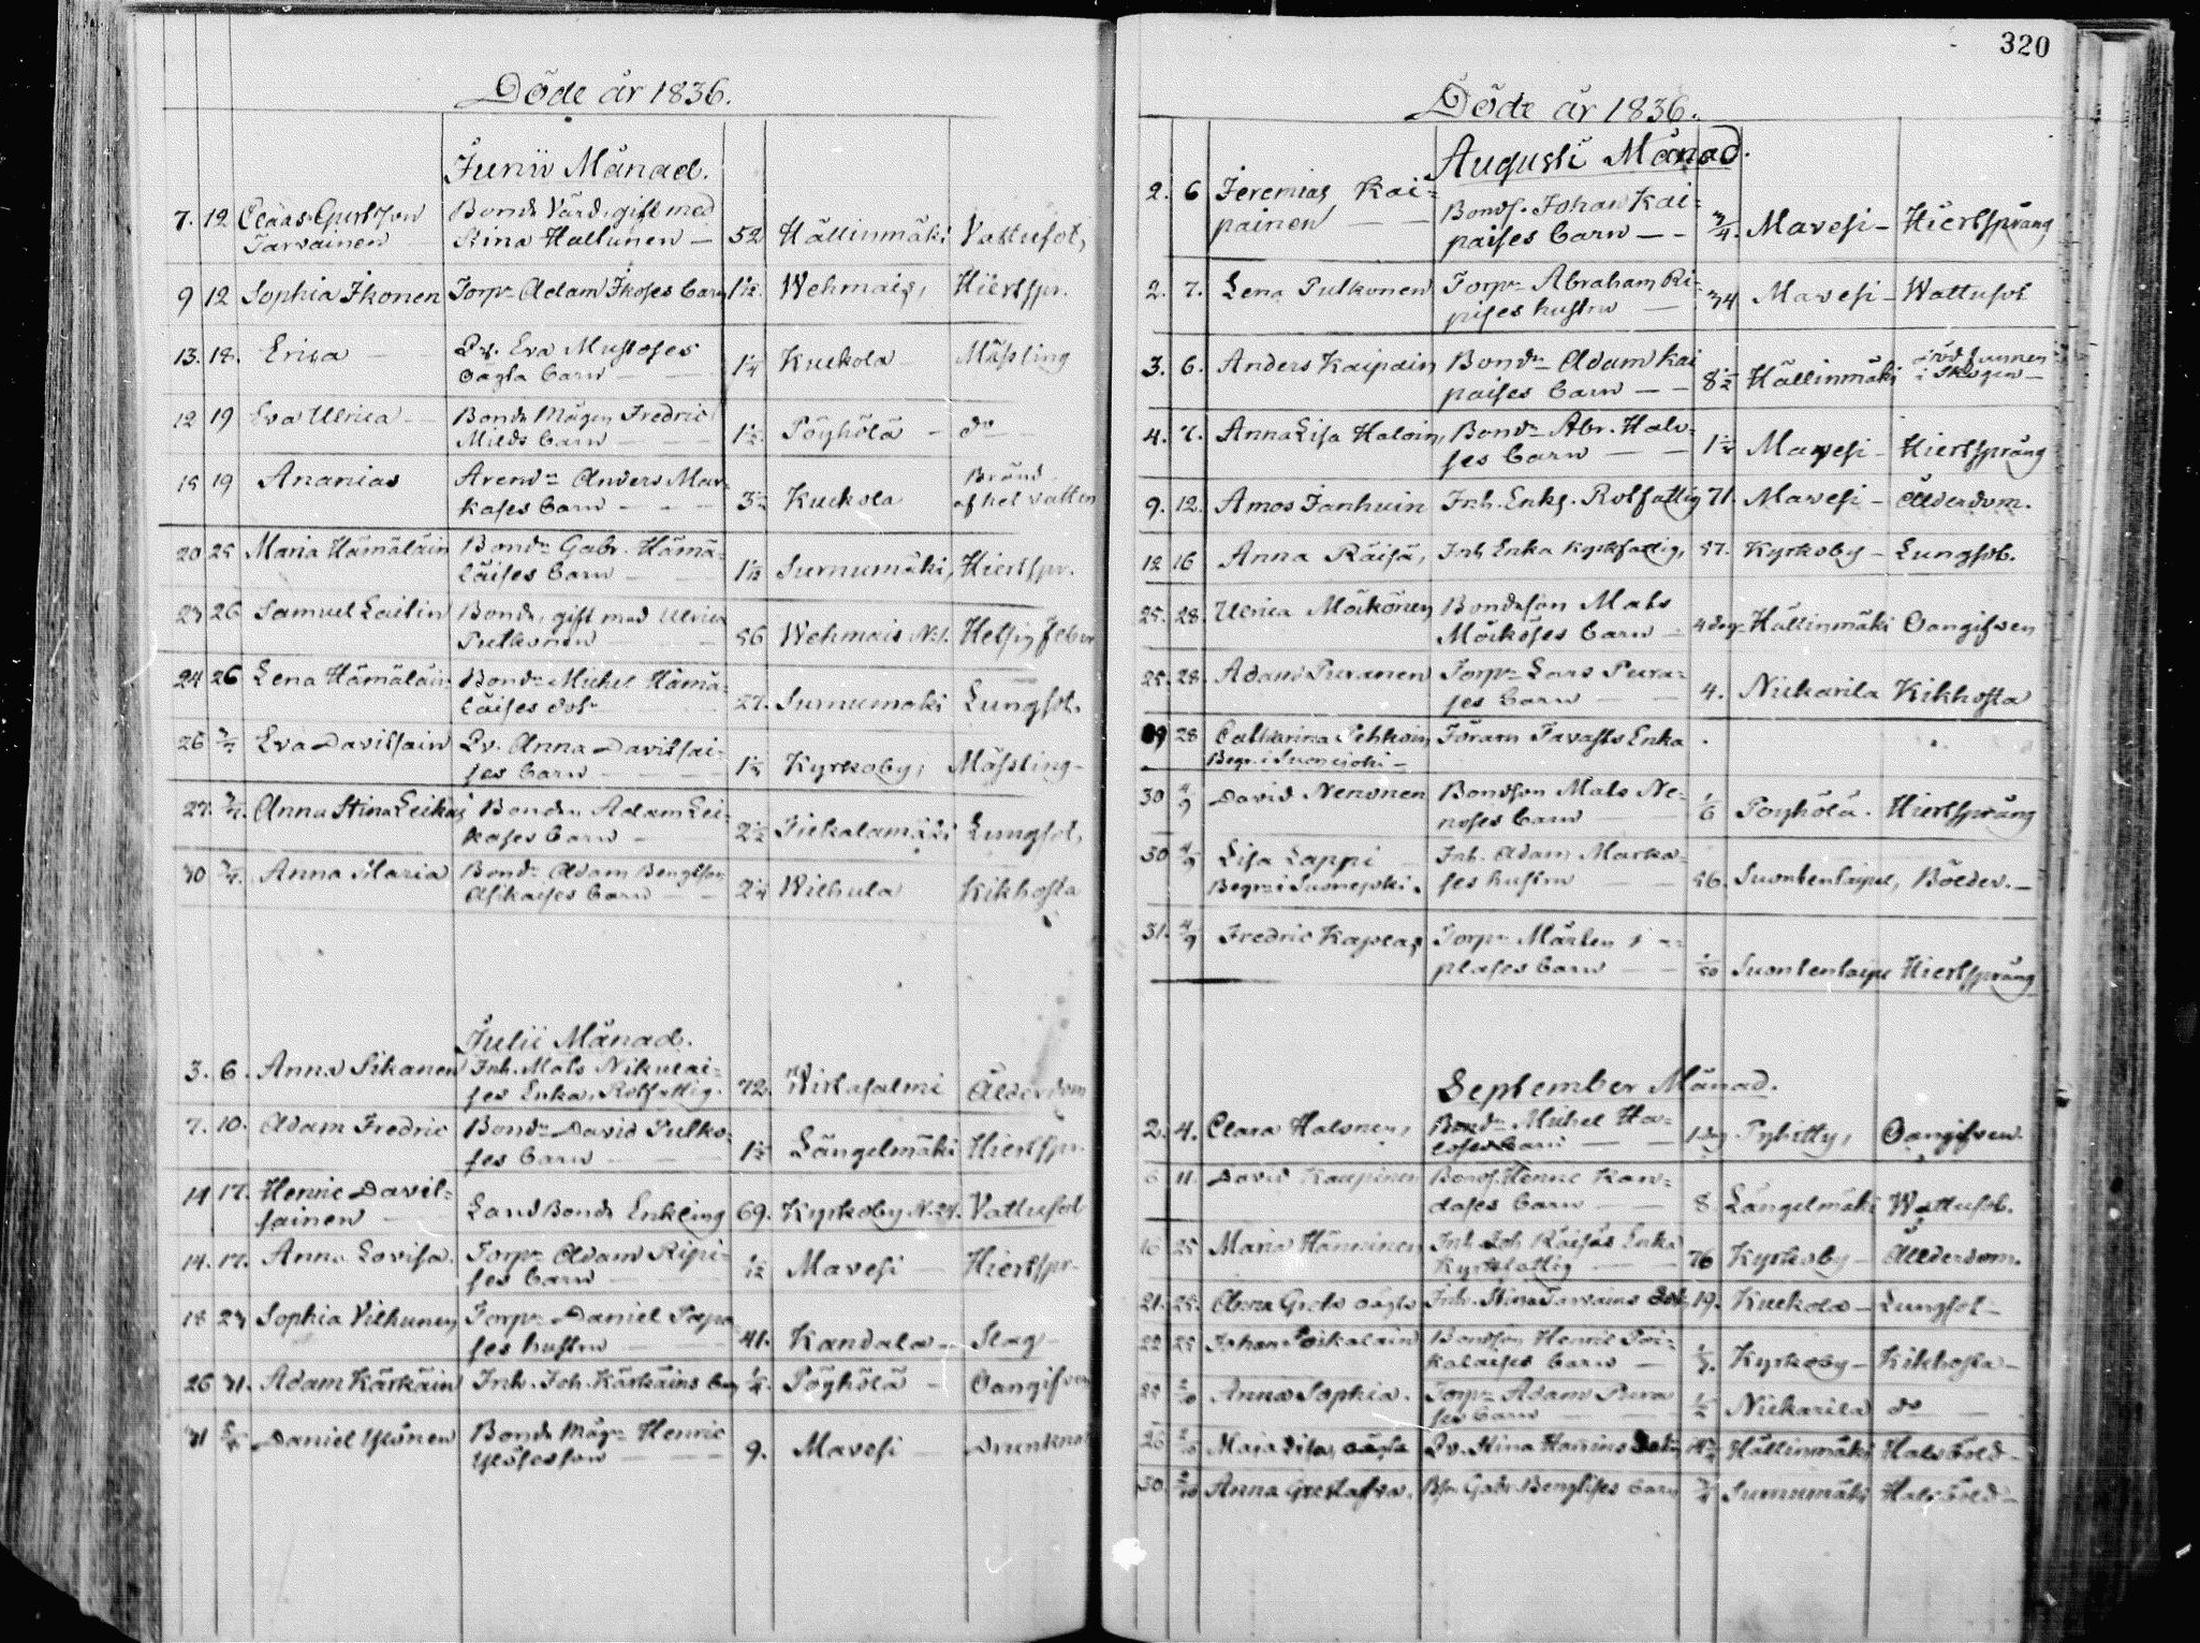 Döde år 1836.
Junii Månad.
7. 12 Claas Gustafson Bond. Värd. gift med
Tarvainen Stina Hallunen — 52 Hällinmäki Vattusot,
9 12 Sophia Ikonen Torp. Adam Ikoses barn 1½. Wehmais, Hiertspr.
13. 18. Erica — P. Eva Mustoses
oägta barn — 1¼ Kuckola Mässling
12 19 Eva Ulrica — Bond. Mågen Fredric
Milds barn — 1½. Pöyhölä — do
19 Ananias Arend. Anders Mar-
kases barn — 3½ Kuckola Bränd
af het vatten
20 25 Maria Hämäläin Bond. Gabr. Hämä-
läises barn — Surnumäki, Hiertspr.
23 26 Samuel Laitin Bond. gift med Ulrica
Pulkonen — 56 Wehmais N:1. Hetsig feber
24 26 Lena Hämäläin Bond. Michel Hämä-
läises dotr 27. Surnumäki Lungsot.
26 Eva Davidsain Pv. Anna Davidsai-
ses barn — Kyrkoby, Mässling —
27. Anna Stina Leikas Bond. Adam Lei-
kases barn — 2½ Pickalamäki Lungsot,
30 Anna Maria Bond. Adam Bengtson
Asikaises barn — 2¼ Wichula Kikhosta
Julii Månad.
3. 6. Anna Sikanen Inh. Mats Nikulai-
ses Enka, Rotfattig. 72. Wirtasalmi Ålderdom
7. 10. Adam Fredric Bond. David Pulko-
ses barn — 1½ Längelmäki Hiertspr.
14 17. Henric David-
sainen — Land Bonde Enkling 69. Kyrkoby N:24. Vattusot
14. 17. Anna Lovisa. Torp. Adam Ripi-
ses barn — ½ Mavesi — Hiertspr
18 23 Sophia Vilhunen, Torp. Daniel Papo
ses hustru — 41. Kandala — Slag —
26 31. Adam Kärkäin Inh. Joh. Kärkäins barn ¼. Pöyhölä — Oangifven
31 Daniel Ylönen Bond. Måg. Henric
Ylöses son — 9. Mavesi — Drunknat
320
Döde år 1836.
Augusti Månad.
2. 6 Jeremias Kai-
painen — Bonds. Johan Kai-
paises barn — — ¾. Mavesi — Hiertsprång
2. 7. Lena Pulkonen Torp. Abraham Ri-
pises hustru — 34 Mavesi — Wattusot
3. 6. Anders Kaipain Bond. Adam Kai
paises barn — — 8½ Hällinmäki död funnen
i skogen —
4. 7. Anna Lisa Haloin, Bond. Abr. Halo-
ses barn — — 1½ Mavesi — Hiertsprång
9. 12. Amos Janhuin Inh. Enkl. Rotfattig 71. Mavesi — Ålderdom.
12 16 Anna Räisä, Inh. Enka Kyrkfattig, 57. Kyrkoby — Lungsot.
25. 28. Ulrica Mäkönen, Bondeson Mats
Mäköses barn — 4 dag. Hällinmäki Oangifven
25. 28. Adam Puranen Torp. Lars Pura-
ses barn — 4. Nickarila Kikhosta
29 28 Catharina Pehkoin, Förarn Tavasts Enka
Begr. i Suonejoki —
30 4/9 David Nenonen Bondson Mats Ne-
noses barn — 1/6 Pöyhölä. Hiertsprång
30 4/9 Lisa Lappi — Inh. Adam Marka-
Begr. i Suonejoki. ses hustru — — 56. Suontenlaipe, Bölder. —
31. 4/9 Fredric Kaplas Torp. Mårten
plases barn — — Suontenlaipe Hiertsprång
September Månad.
2. 4. Clara Halonen, Bond. Michel Ha-
loses barn — — 1 dag Pyhitty, Oangifven.
6 11. David Kaupinen Bonds. Henric Kau-
ses barn — 8. Längelmäki Wattusot.
16 25 Maria Hänninen Inh. Joh. Räisäs Enka
Kyrkfattig — 76 Kyrkoby — Ålderdom.
21. 25. Anna Greta oägta Inh. Stina Tarvains dotr 19. Kuckola — Lungsot —
22 25 Johan Poikalain Bondson Henric Poi-
kalaises barn — Kyrkoby — Kikhosta —
Anna Sophia. Torp. Adam Pura
ses barn — — ½ Nickarila do —
Maja Lisa, oägta Pv. Stina dotr Hällinmäki Halsböld —
30. 2/10 Anna Gustafva. Gabr. Bengtises barn Surnumäki Halsböld —